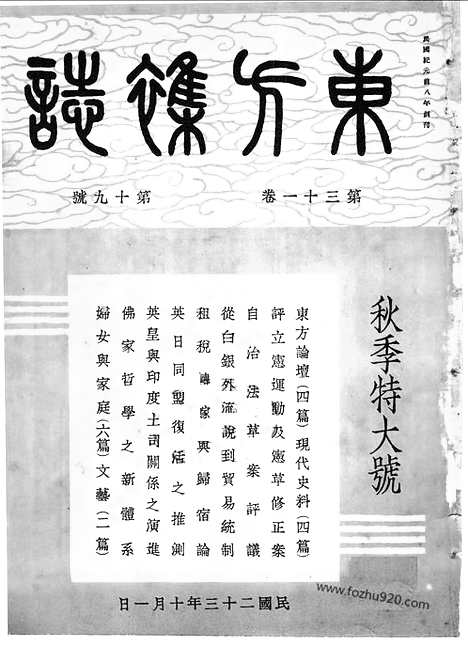 民國紀元前八年創刊
東方雜誌
第三十一卷 第十九號
秋季特大號
東方論壇(四篇)現代史料(四篇)
評立憲運動及憲草修正案
自治法草案評議
從白銀外流說到貿易統制
租稅轉嫁與歸宿論
英日同盟復活之推測
英皇與印度土司關係之演進
佛家哲學之新體系
婦女與家庭(六篇)文藝(二篇)
民國二十三年十月一日
www.fozhu920.com